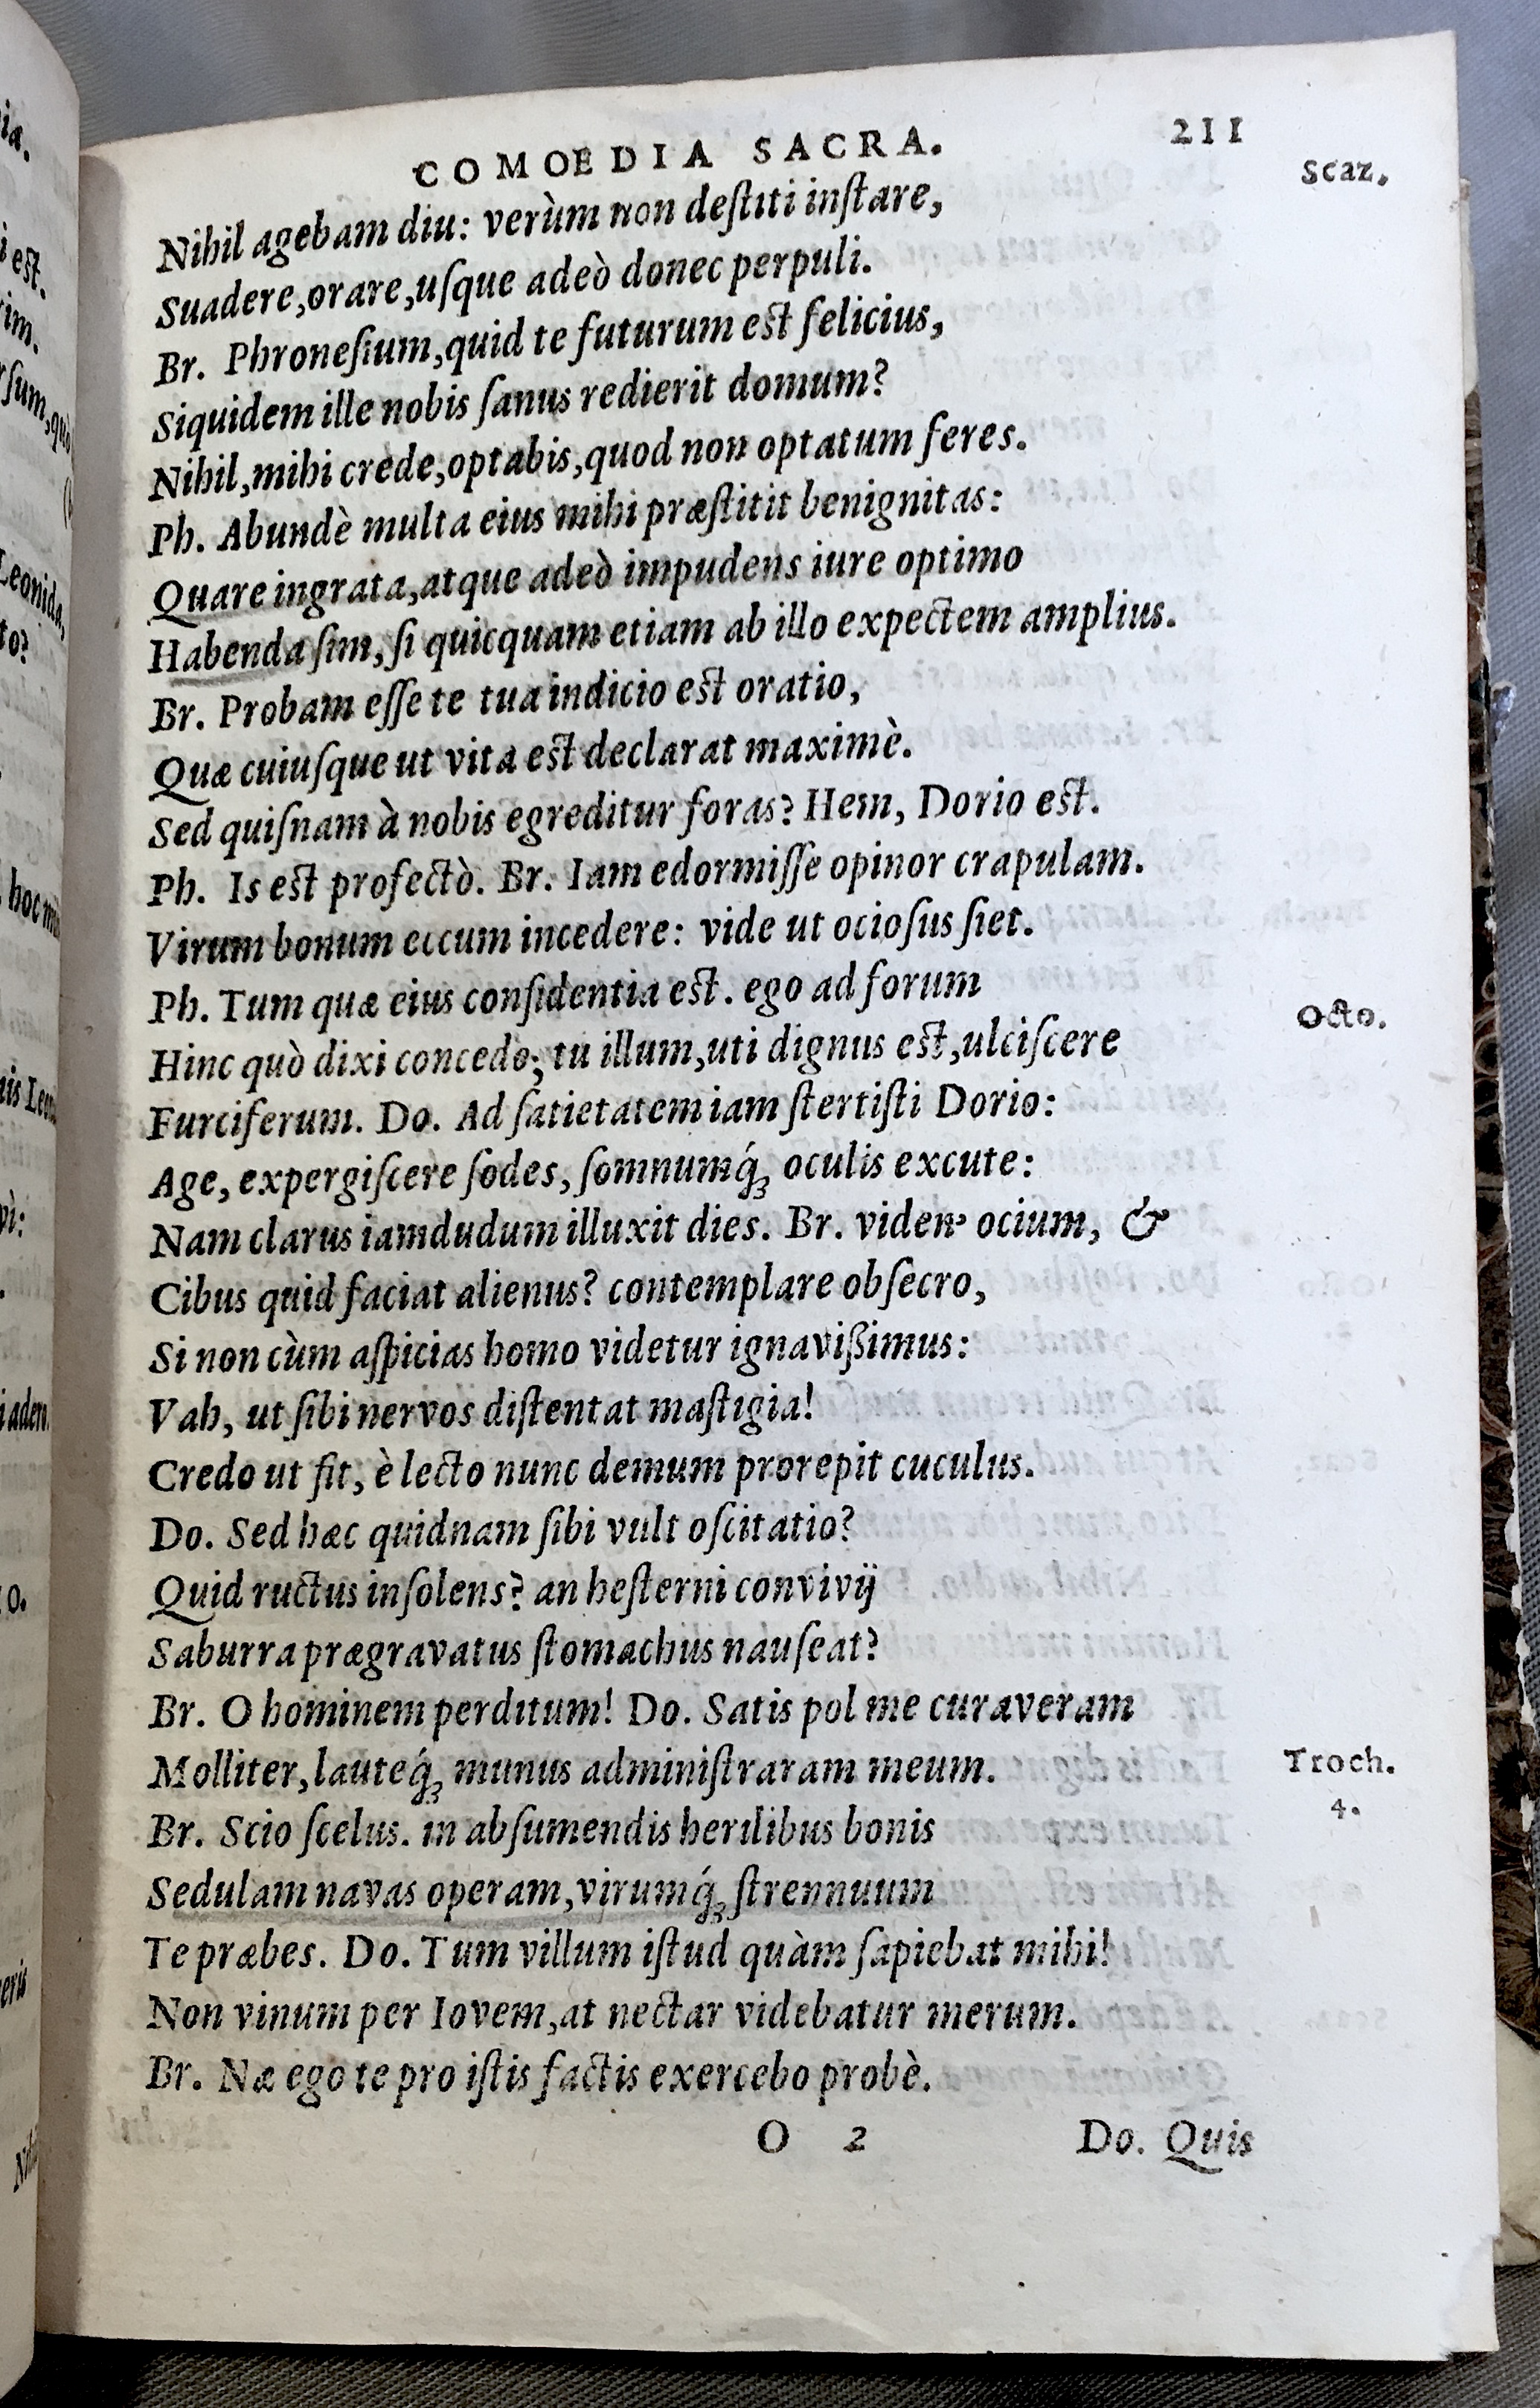 COMOEDIA SACRA. 211
Scaz.
Nihil agebam diu: verùm non deſtiti inſtare,
Suadere,orare,uſque adeò donec perpuli.
Br. Phroneſium,quid te futurum eſt felicius,
Siquidem ille nobis ſanus redierit domum?
Nihil,mihi crede,optabis,quod non optatum feres.
Ph. Abundè multa eius mihi præſtitit benignitas:
Quare ingrata,atque adeò impudens iure optimo
Habenda ſim,ſi quicquam etiam ab illo expectem amplius.
Br. Probam eſſe te tua indicio eſt oratio,
Quæ cuiuſque ut vita eſt declarat maximè.
Sed quiſnam à nobis egreditur foras? Hem, Dorio eſt.
Ph. Is eſt profectò. Br. Iam edormiſſe opinor crapulam.
Virum bonum eccum incedere: vide ut ocioſus ſiet.
Ph. Tum quæ eius conſidentia eſt. ego ad forum
Octo.
Hinc quò dixi concedo; tu illum,uti dignus eſt,ulciſcere
Furciferum. Do. Ad ſatietatem iam ſtertiſti Dorio:
Age, expergiſcere ſodes, ſomnumq́ꝫ oculis excute:
Nam clarus iamdudum illuxit dies. Br. viden' ocium, &
Cibus quid faciat alienus? contemplare obſecro,
Si non cùm aſpicias homo videtur ignavißimus:
Vah, ut ſibi nervos diſtentat maſtigia!
Credo ut fit, è lecto nunc demum prorepit cuculus.
Do. Sed hæc quidnam ſibi vult oſcitatio?
Quid ructus inſolens? an heſterni convivij
Saburra prægravatus ſtomachus nauſeat?
Br. O hominem perditum! Do. Satis pol me curaveram
Molliter,lauteq́ꝫ munus adminiſtraram meum.
Troch.
4.
Br. Scio ſcelus. in abſumendis herilibus bonis
Sedulam navas operam,virumq́ꝫ ſtrennuum
Te præbes. Do. Tum villum iſtud quàm ſapiebat mihi!
Non vinum per Iovem,at nectar videbatur merum.
Br. Næ ego te pro iſtis factis exercebo probè.
O 2 Do. Quis